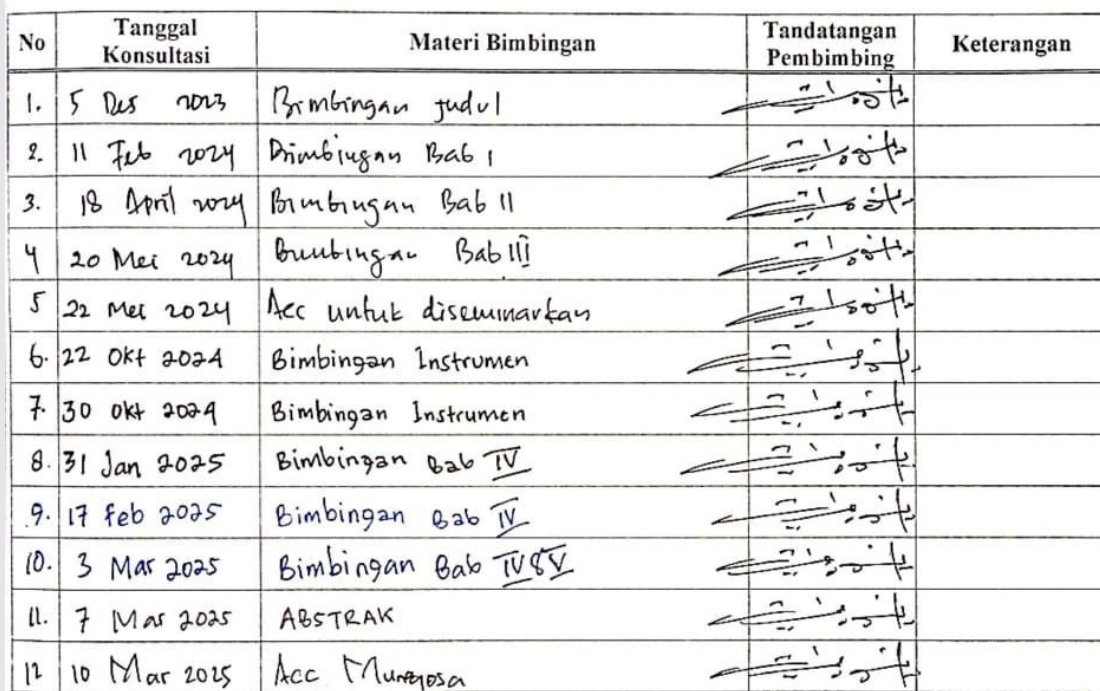 No Tanggal Konsultasi Materi Bimbingan Tandatangan Pembimbing Keterangan
1. 5 Des 2023 Bimbingan judul
2. 11 Feb 2024 Bimbingan Bab I
3. 18 April 2024 Bimbingan Bab II
4 20 Mei 2024 Bimbingan Bab III
5 22 Mei 2024 Acc untuk diseminarkan
6. 22 Okt 2024 Bimbingan Instrumen
7. 30 Okt 2024 Bimbingan Instrumen
8. 31 Jan 2025 Bimbingan Bab IV
9. 17 feb 2025 Bimbingan Bab IV
10. 3 Mar 2025 Bimbingan Bab IV & V
11. 7 Mar 2025 ABSTRAK
12 10 Mar 2025 Acc